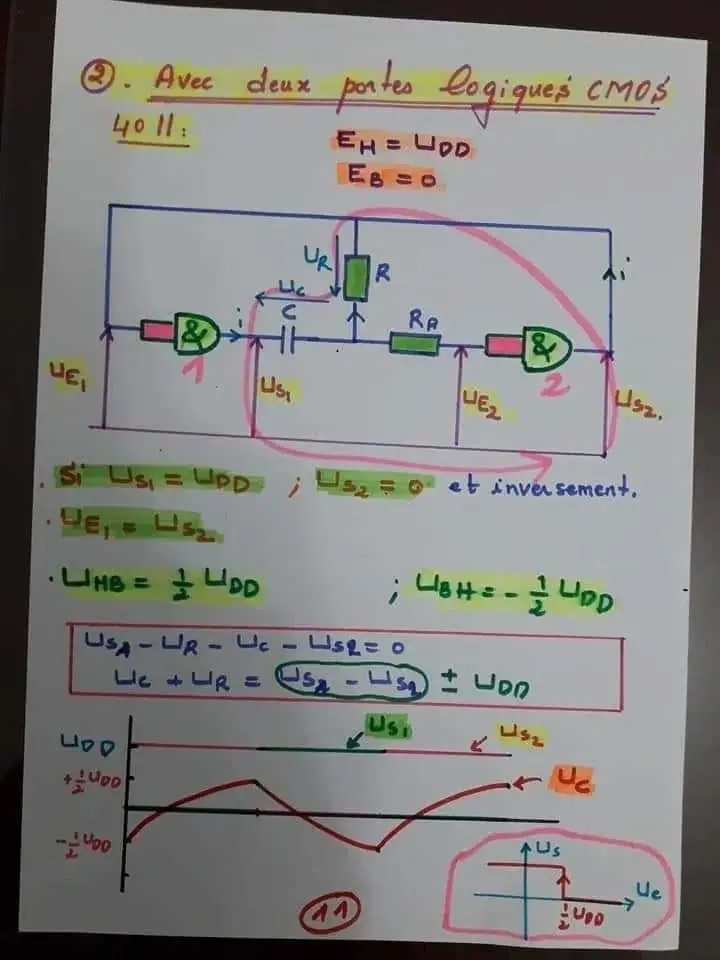 ②. Avec deux portes logiques CMOS
4011:
E_H = U_DD
E_B = 0
U_R
R
U_C
C
i
i
R_A
&
1
&
2
U_E1
U_S1
U_E2
U_S2.
. Si U_S1 = U_DD ; U_S2 = 0 et inversement.
. U_E1 = U_S2
. U_HB = 1/2 U_DD ; U_BH = - 1/2 U_DD
U_S1 - U_R - U_C - U_S2 = 0
U_C + U_R = U_S1 - U_S2 ± U_DD
U_DD
U_S1
U_S2
+1/2 U_DD
U_C
-1/2 U_DD
U_S
U_e
1/2 U_DD
11